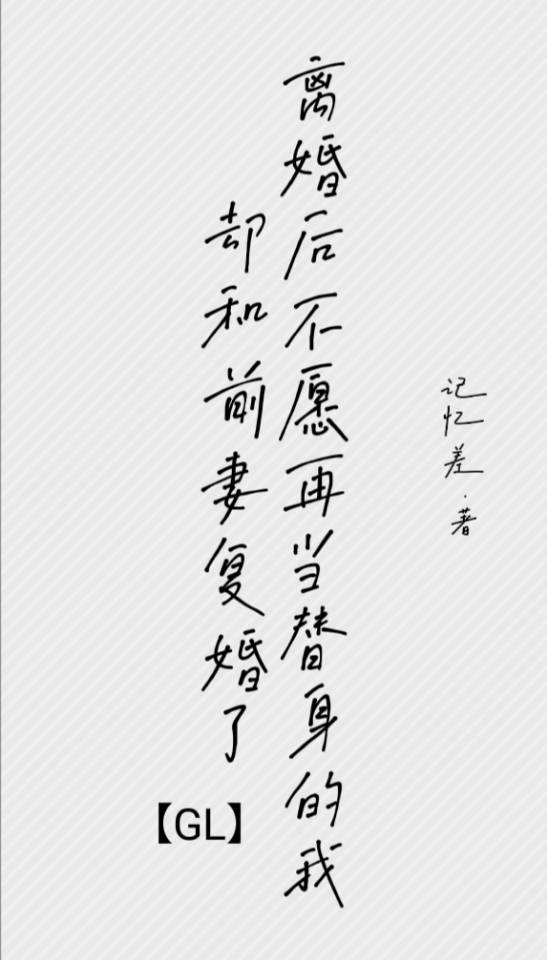 离婚后不愿再当替身的我
却和前妻复婚了
【GL】
记忆差·著